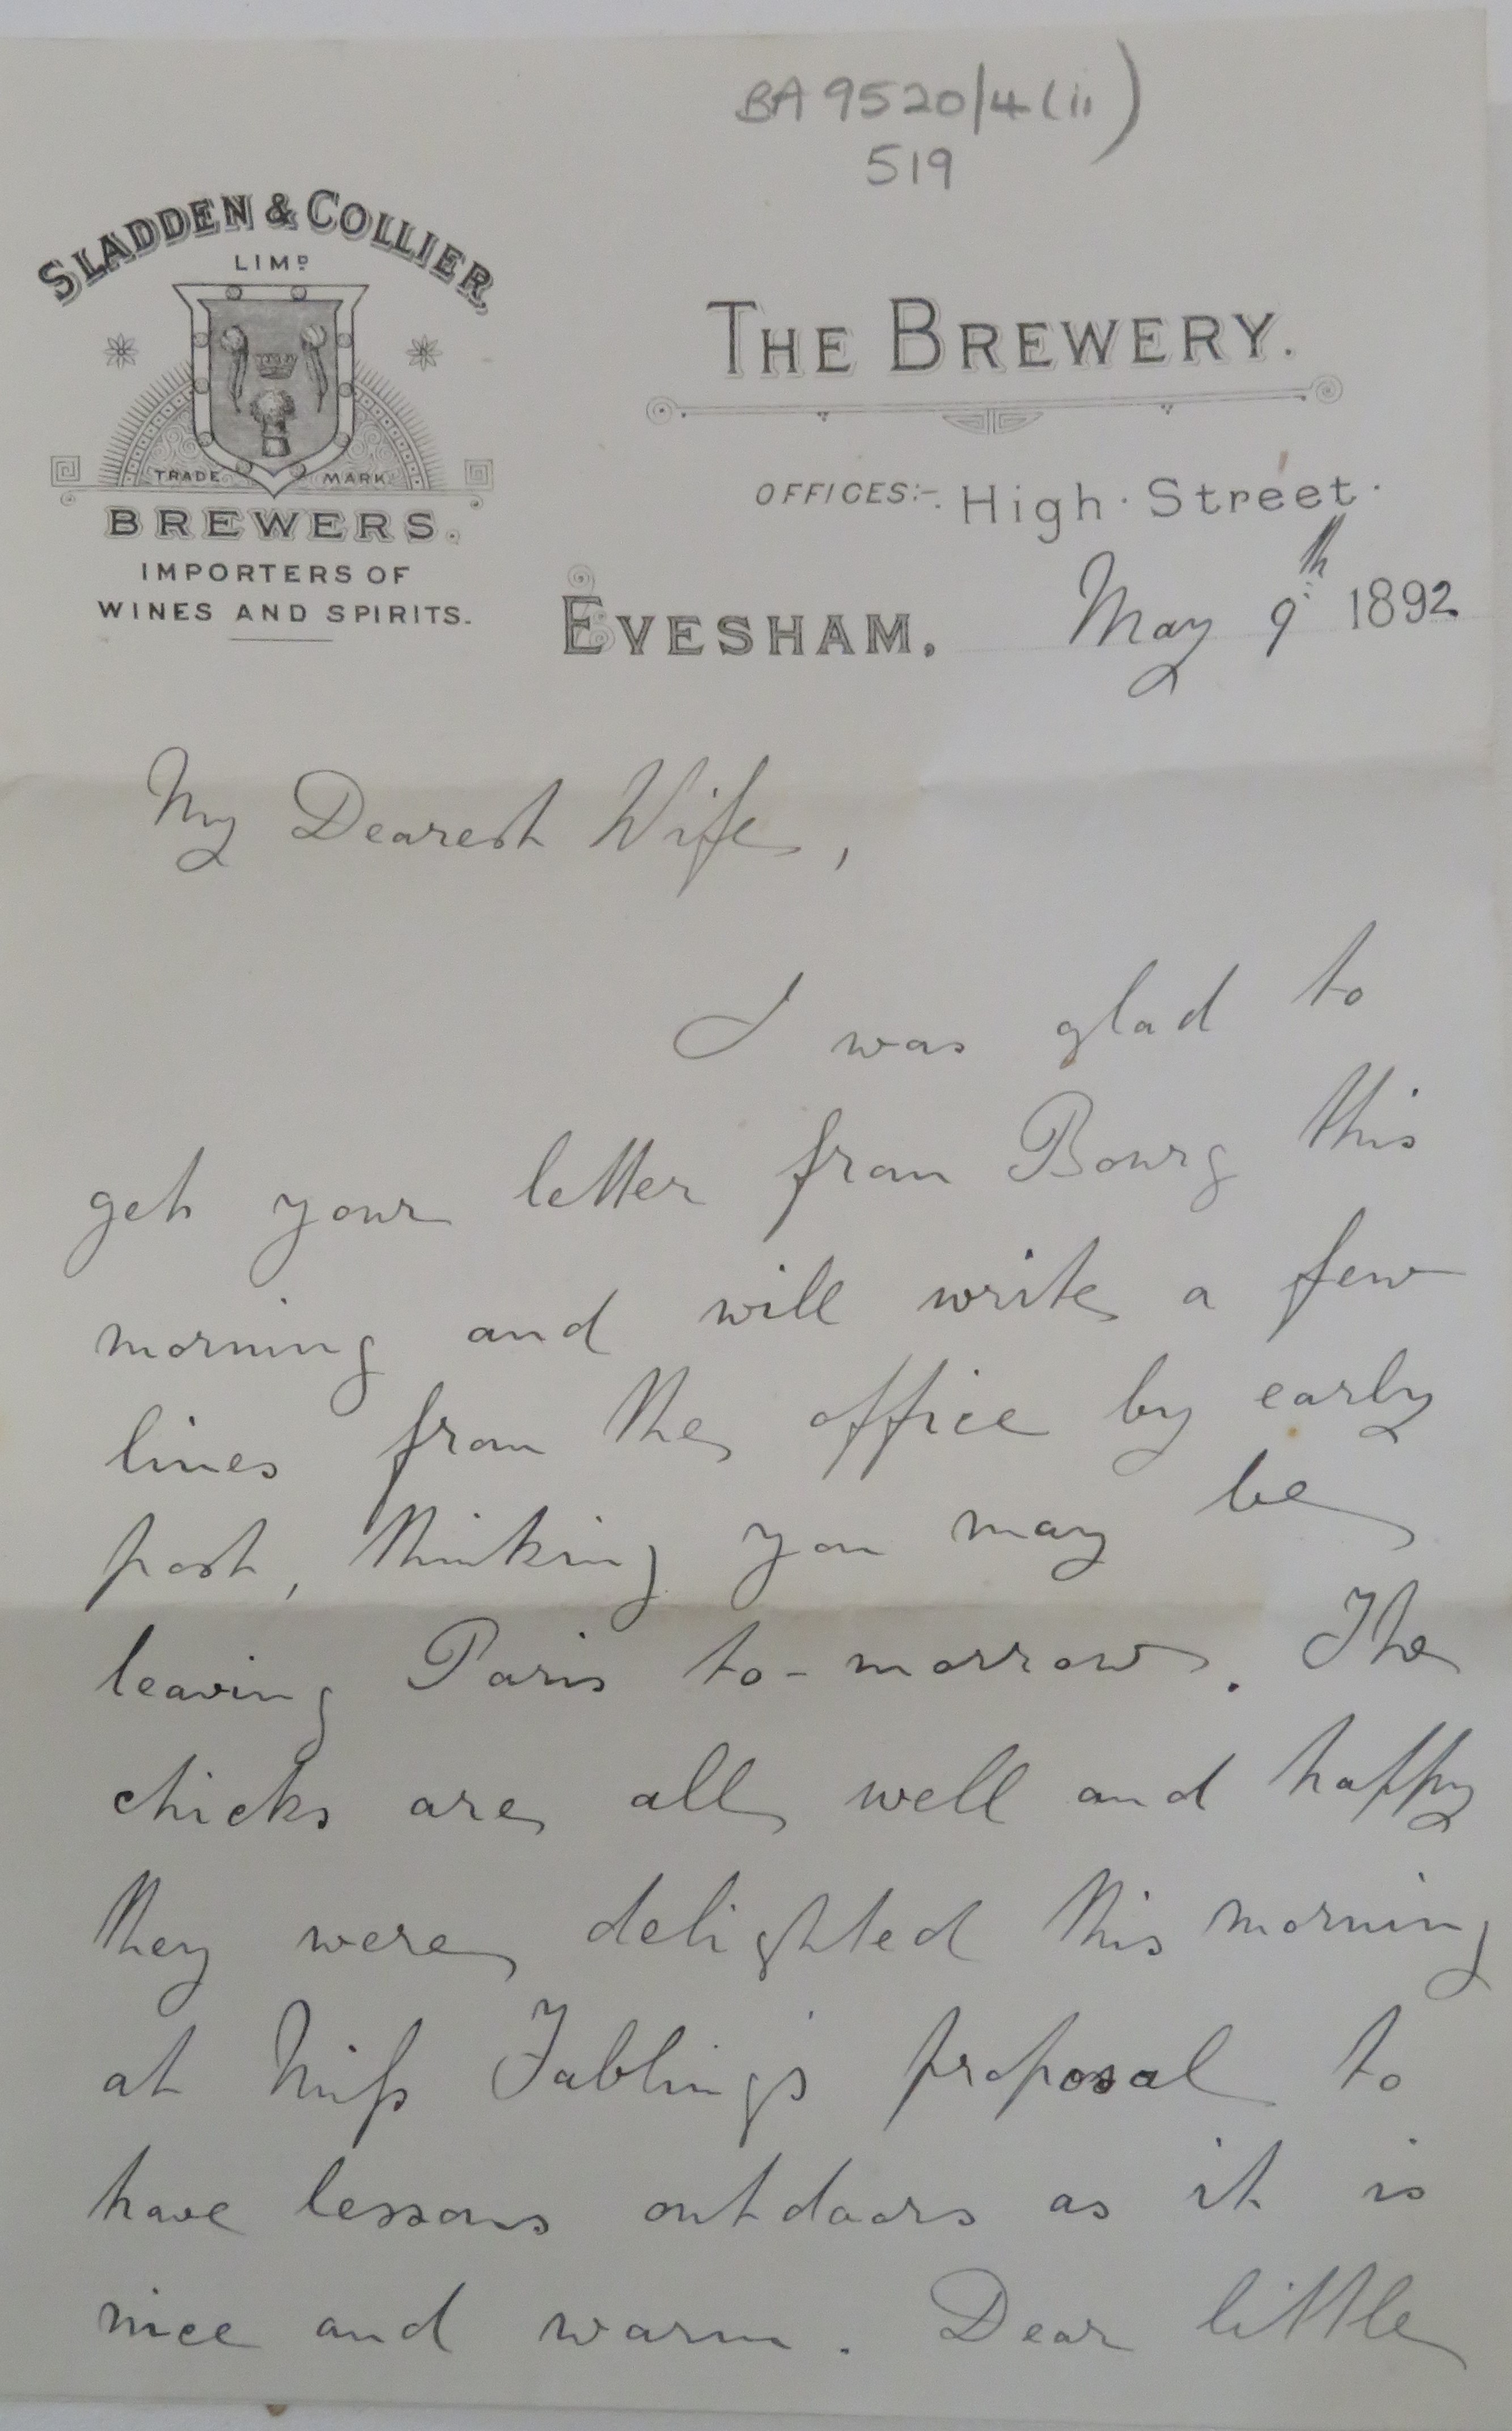 BA 9520/4(ii)
519
SLADDEN & COLLIER
LIMD
TRADE MARK
BREWERS.
IMPORTERS OF
WINES AND SPIRITS.
THE BREWERY.
OFFICES:- High Street.
EVESHAM. May 9th 1892
My Dearest Wife,
I was glad to
get your letter from Bourg this
morning and will write a few
lines from the office by early
post, thinking you may be
leaving Paris to-morrow. The
chicks are all well and happy
they were delighted this morning
at Miss Fablings proposal to
have lessons outdoors as it is
nice and warm. Dear little